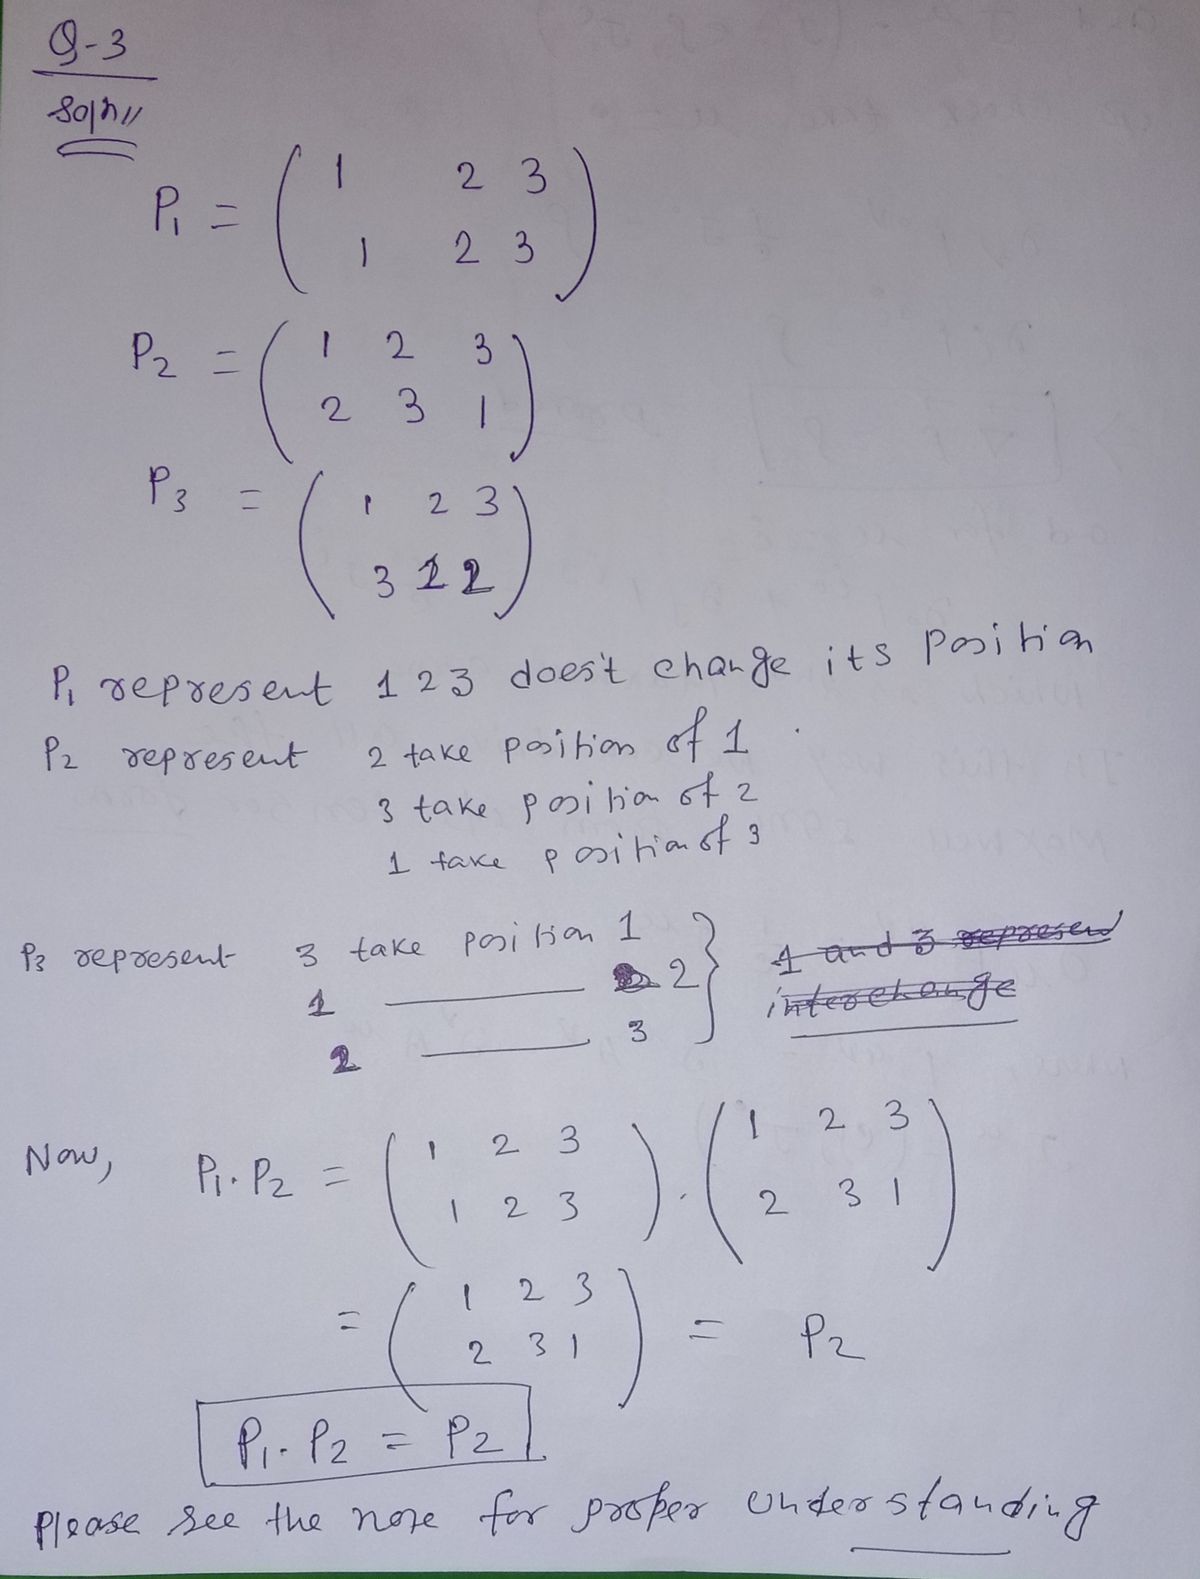 Q-3
Soln//
P1 = ( 1 2 3
1 2 3 )
P2 = ( 1 2 3
2 3 1 )
P3 = ( 1 2 3
3 1 2 )
P1 represent 1 2 3 does't change its position
P2 represent 2 take position of 1
3 take position of 2
1 take position of 3
P3 represent 3 take position 1
1 ——— 2
2 ——— 3
1 and 3 represen
interchange
Now, P1. P2 = ( 1 2 3 ) . ( 1 2 3
1 2 3 2 3 1 )
= ( 1 2 3
2 3 1 ) = P2
P1. P2 = P2
Please see the note for proper understanding